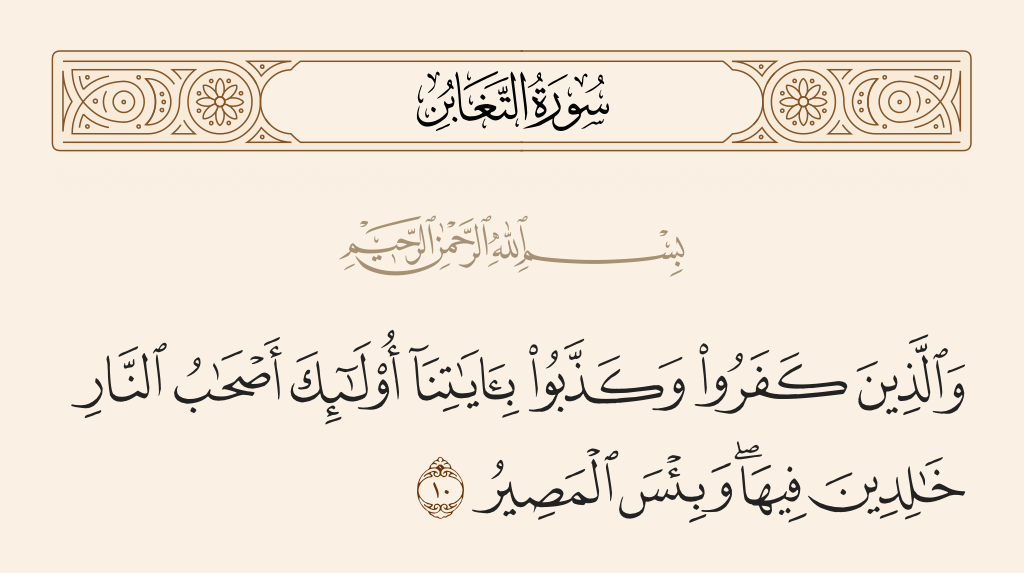 سُورَةُ التَّغَابُنِ
بِسْمِ ٱللَّهِ ٱلرَّحْمَٰنِ ٱلرَّحِيمِ
وَٱلَّذِينَ كَفَرُوا۟ وَكَذَّبُوا۟ بِـَٔايَٰتِنَآ أُو۟لَٰٓئِكَ أَصْحَٰبُ ٱلنَّارِ
خَٰلِدِينَ فِيهَا ۖ وَبِئْسَ ٱلْمَصِيرُ ١٠